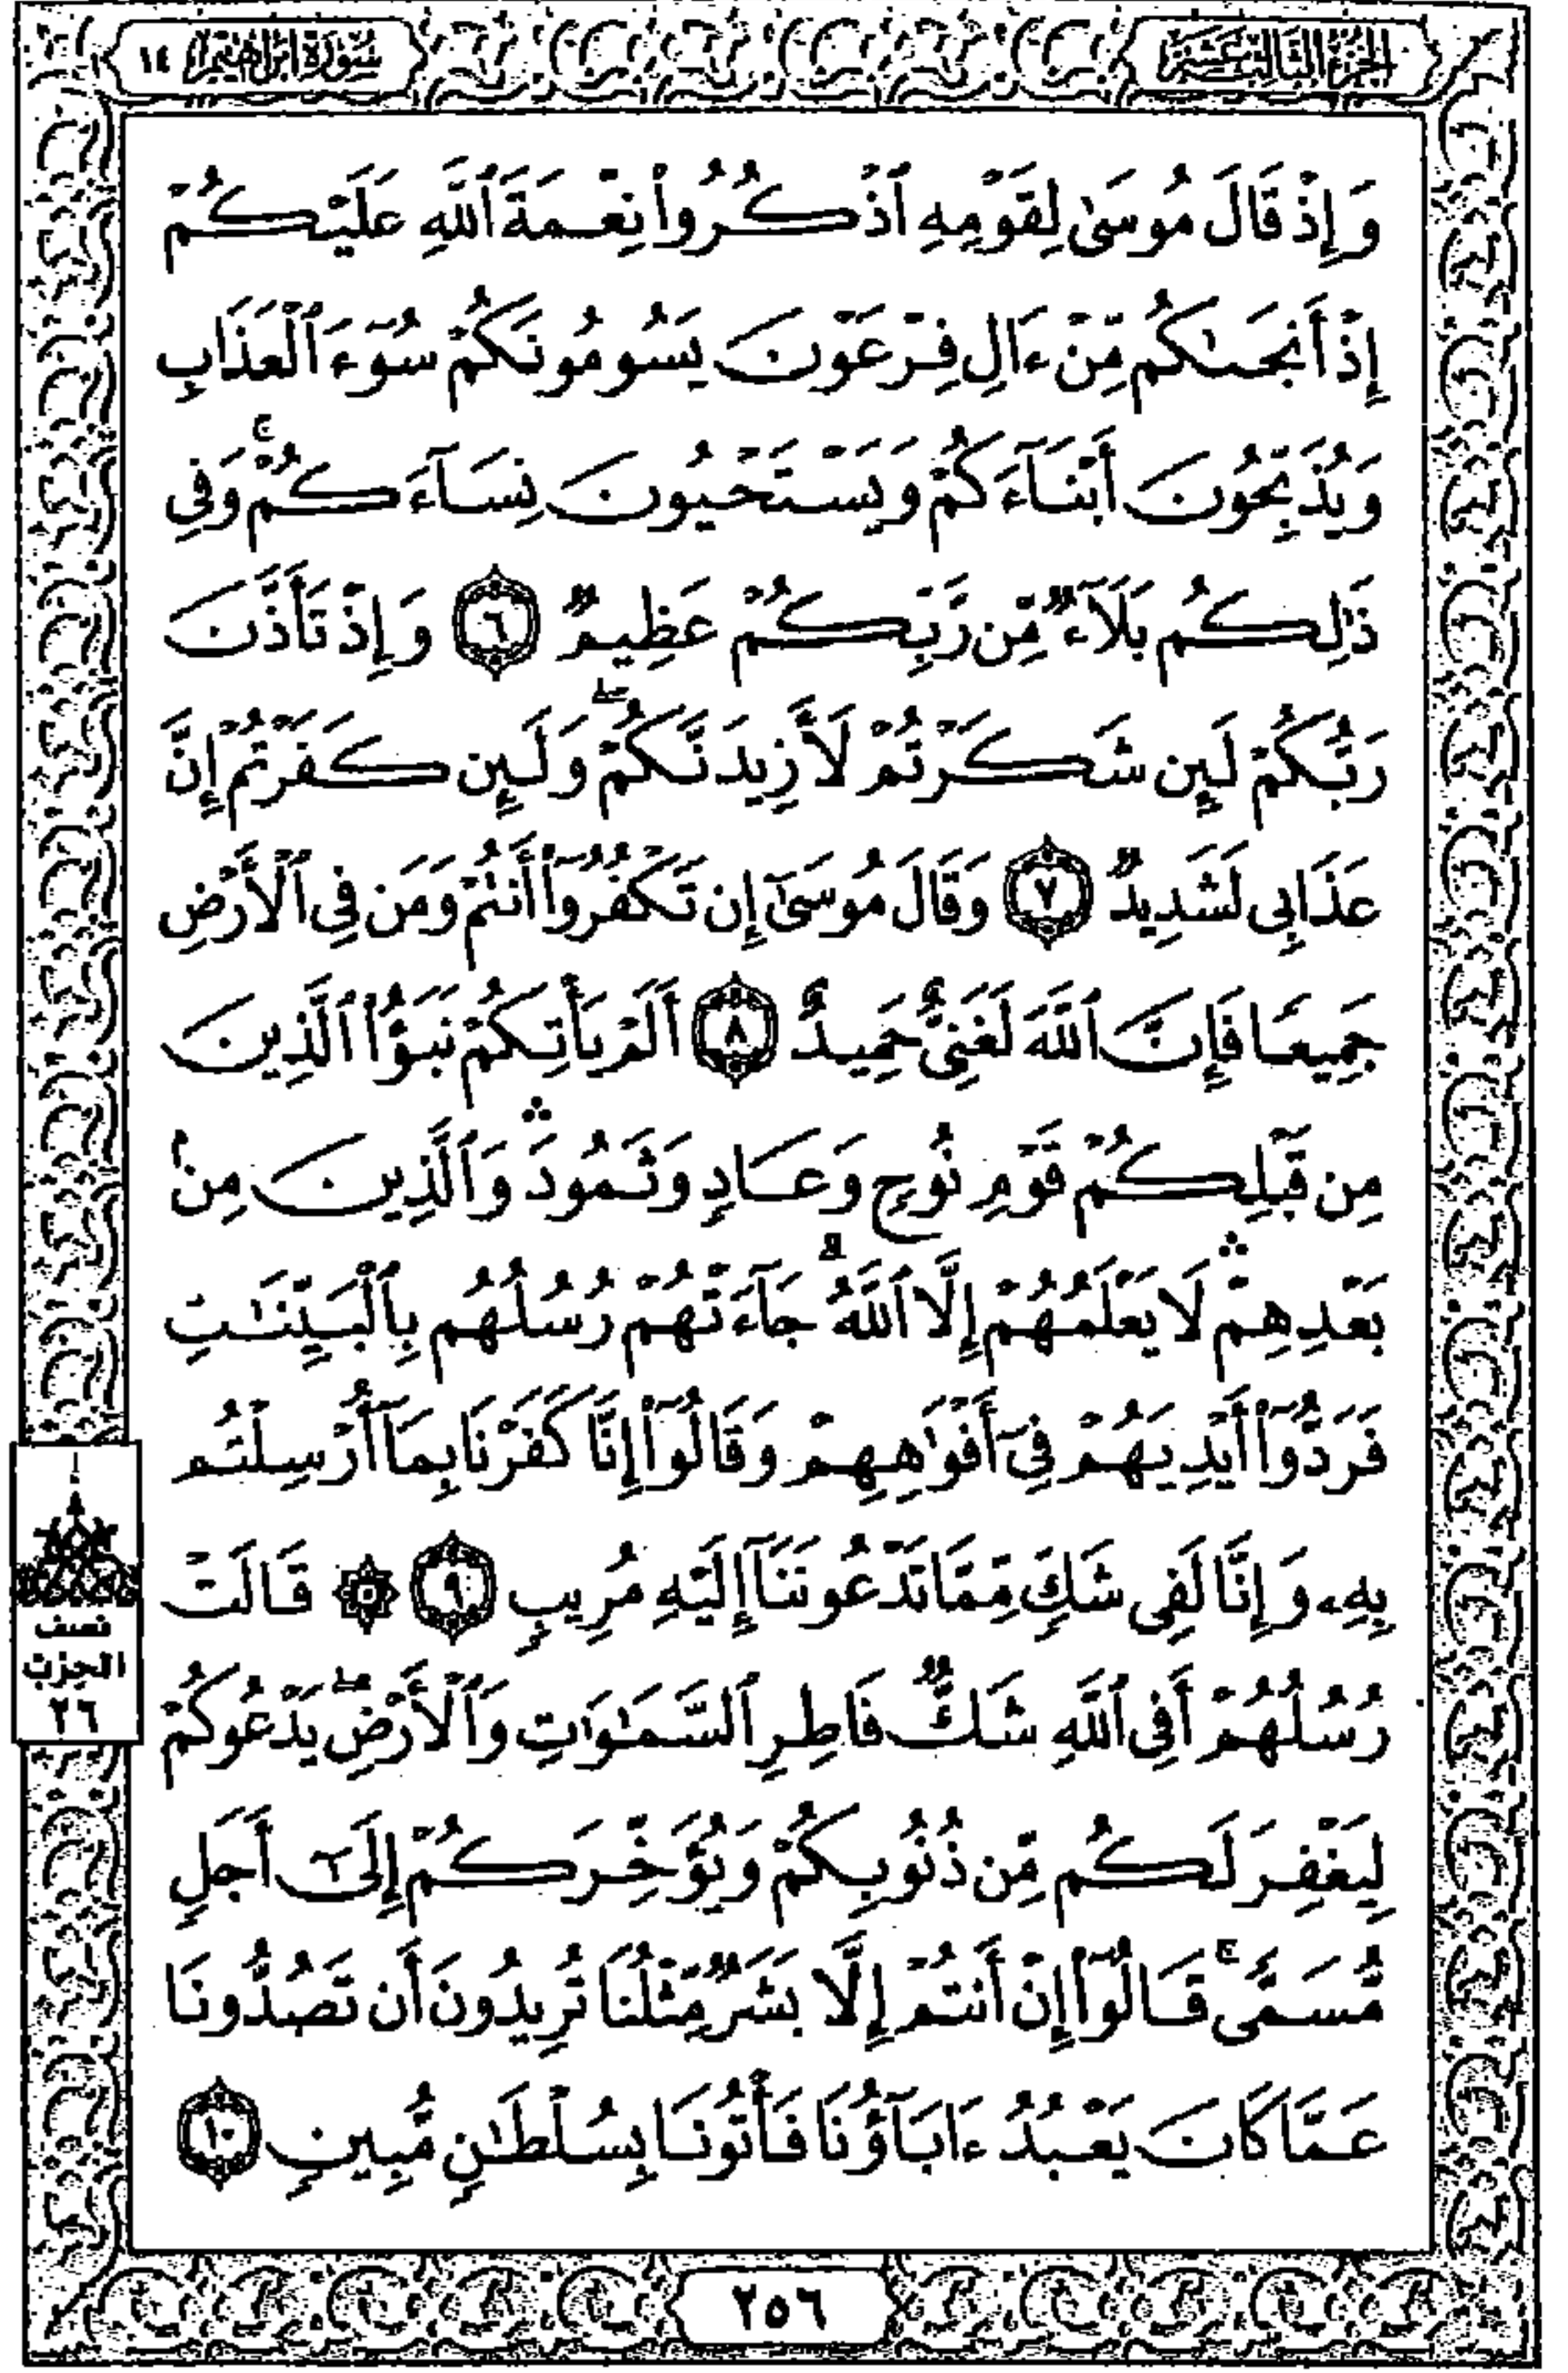 الجزء الثالث عشر
سورة إبراهيم ١٤
وَإِذْ قَالَ مُوسَىٰ لِقَوْمِهِ ٱذْكُرُوا۟ نِعْمَةَ ٱللَّهِ عَلَيْكُمْ
إِذْ أَنجَىٰكُم مِّنْ ءَالِ فِرْعَوْنَ يَسُومُونَكُمْ سُوٓءَ ٱلْعَذَابِ
وَيُذَبِّحُونَ أَبْنَآءَكُمْ وَيَسْتَحْيُونَ نِسَآءَكُمْ ۚ وَفِى
ذَٰلِكُم بَلَآءٌ مِّن رَّبِّكُمْ عَظِيمٌ ٦ وَإِذْ تَأَذَّنَ
رَبُّكُمْ لَئِن شَكَرْتُمْ لَأَزِيدَنَّكُمْ ۖ وَلَئِن كَفَرْتُمْ إِنَّ
عَذَابِى لَشَدِيدٌ ٧ وَقَالَ مُوسَىٰٓ إِن تَكْفُرُوٓا۟ أَنتُمْ وَمَن فِى ٱلْأَرْضِ
جَمِيعًا فَإِنَّ ٱللَّهَ لَغَنِىٌّ حَمِيدٌ ٨ أَلَمْ يَأْتِكُمْ نَبَؤُا۟ ٱلَّذِينَ
مِن قَبْلِكُمْ قَوْمِ نُوحٍ وَعَادٍ وَثَمُودَ ۛ وَٱلَّذِينَ مِنۢ
بَعْدِهِمْ ۛ لَا يَعْلَمُهُمْ إِلَّا ٱللَّهُ ۚ جَآءَتْهُمْ رُسُلُهُم بِٱلْبَيِّنَٰتِ
فَرَدُّوٓا۟ أَيْدِيَهُمْ فِىٓ أَفْوَٰهِهِمْ وَقَالُوٓا۟ إِنَّا كَفَرْنَا بِمَآ أُرْسِلْتُم
بِهِۦ وَإِنَّا لَفِى شَكٍّ مِّمَّا تَدْعُونَنَآ إِلَيْهِ مُرِيبٍ ٩ ۞ قَالَتْ
رُسُلُهُمْ أَفِى ٱللَّهِ شَكٌّ فَاطِرِ ٱلسَّمَٰوَٰتِ وَٱلْأَرْضِ ۖ يَدْعُوكُمْ
لِيَغْفِرَ لَكُم مِّن ذُنُوبِكُمْ وَيُؤَخِّرَكُمْ إِلَىٰٓ أَجَلٍ
مُّسَمًّى ۚ قَالُوٓا۟ إِنْ أَنتُمْ إِلَّا بَشَرٌ مِّثْلُنَا تُرِيدُونَ أَن تَصُدُّونَا
عَمَّا كَانَ يَعْبُدُ ءَابَآؤُنَا فَأْتُونَا بِسُلْطَٰنٍ مُّبِينٍ ١٠
نصف
الحزب
٢٦
٢٥٦